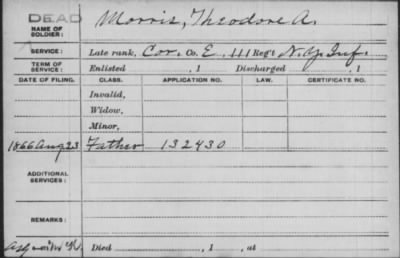 DEAD
NAME OF SOLDIER: Morris, Theodore A.
SERVICE: Late rank, Cor. Co. E, 111 Reg't N.Y. Inf.
TERM OF SERVICE: Enlisted , 1 Discharged , 1
DATE OF FILING. CLASS. APPLICATION NO. LAW. CERTIFICATE NO.
Invalid,
Widow,
Minor,
1866 Aug 23 Father 132430
ADDITIONAL SERVICES:
REMARKS:
Died , 1 , at